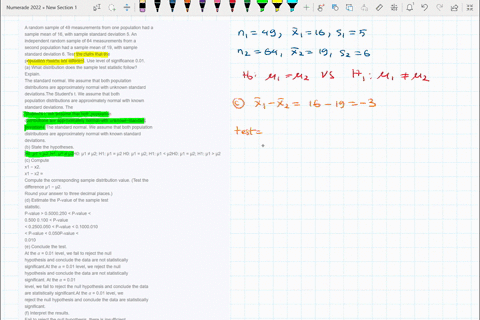 Numerade 2022 » New Section 1
A random sample of 49 measurements from one population had a
sample mean of 16, with sample standard deviation 5. An
independent random sample of 64 measurements from a
second population had a sample mean of 19, with sample
standard deviation 6. Test the claim that the
population means are different. Use level of significance 0.01.
(a) What distribution does the sample test statistic follow?
Explain.
The standard normal. We assume that both population
distributions are approximately normal with unknown standard
deviations.The Student's t. We assume that both
population distributions are approximately normal with known
standard deviations. The
Student's t. We assume that both population
distributions are approximately normal with unknown standard
deviations. The standard normal. We assume that both population
distributions are approximately normal with known standard
deviations.
(b) State the hypotheses.
(c) Compute
x1 − x2.
x1 − x2 =
Compute the corresponding sample distribution value. (Test the
difference μ1 − μ2.
Round your answer to three decimal places.)
(d) Estimate the P-value of the sample test
statistic.
P-value >
(e) Conclude the test.
At the α = 0.01 level, we fail to reject the null
hypothesis and conclude the data are not statistically
significant.At the α = 0.01 level, we reject the null
hypothesis and conclude the data are not statistically
significant. At the α = 0.01
level, we fail to reject the null hypothesis and conclude the data
are statistically significant.At the α = 0.01 level, we
reject the null hypothesis and conclude the data are statistically
significant.
(f) Interpret the results.
n₁ = 49, x̄₁ = 16, S₁ = 5
n₂ = 64, x̄₂ = 19, S₂ = 6
H₀: μ₁ = μ₂ VS H₁: μ₁ ≠ μ₂
x̄₁ - x̄₂ = 16 - 19 = -3
test=